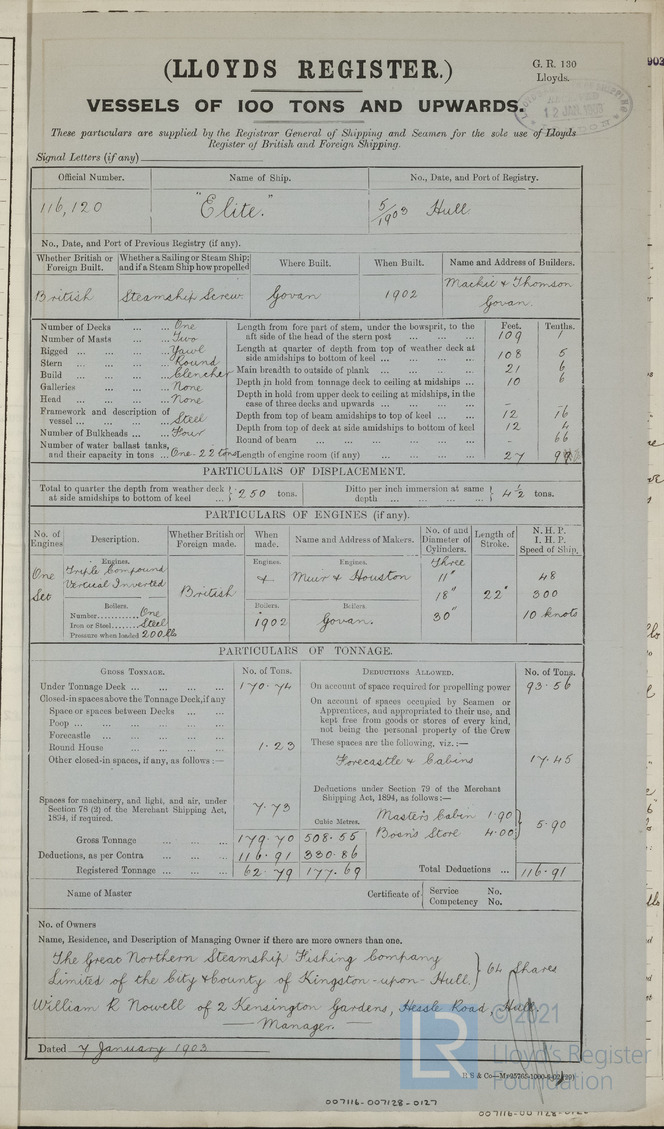 (LLOYDS REGISTER.)
G. R. 130
Lloyds.
VESSELS OF 100 TONS AND UPWARDS.
12 JAN 1903
These particulars are supplied by the Registrar General of Shipping and Seamen for the sole use of Lloyds
Register of British and Foreign Shipping.
Signal Letters (if any)
Official Number. Name of Ship. No., Date, and Port of Registry.
116,120 "Elite." 5/1903 Hull
No., Date, and Port of Previous Registry (if any).
Whether British or Foreign Built. Whether a Sailing or Steam Ship; and if a Steam Ship how propelled Where Built. When Built. Name and Address of Builders.
British Steamship Screw Govan 1902 Mackie & Thomson
Govan.
Number of Decks ... ... One
Number of Masts ... ... Two
Rigged ... ... ... ... Yawl
Stern ... ... ... ... Round
Build ... ... ... ... Clencher
Galleries ... ... ... None
Head ... ... ... ... None
Framework and description of
vessel ... ... ... ... Steel
Number of Bulkheads ... ... Four
Number of water ballast tanks,
and their capacity in tons ... One - 22 tons
Feet. Tenths.
Length from fore part of stem, under the bowsprit, to the
aft side of the head of the stern post ... ... 109 1
Length at quarter of depth from top of weather deck at
side amidships to bottom of keel ... ... ... 108 5
Main breadth to outside of plank ... ... ... 21 6
Depth in hold from tonnage deck to ceiling at midships ... 10 6
Depth in hold from upper deck to ceiling at midships, in the
case of three decks and upwards ... ... ... - -
Depth from top of beam amidships to top of keel ... ... 12 16
Depth from top of deck at side amidships to bottom of keel 12 4
Round of beam ... ... ... ... ... - 66
Length of engine room (if any) ... ... ... ... 27
PARTICULARS OF DISPLACEMENT.
Total to quarter the depth from weather deck
at side amidships to bottom of keel ... } 250 tons.
Ditto per inch immersion at same
depth ... ... ... ... } 4½ tons.
PARTICULARS OF ENGINES (if any).
No. of Engines Description. Whether British or Foreign made. When made. Name and Address of Makers. No. of and Diameter of Cylinders. Length of Stroke. N. H. P. I. H. P. Speed of Ship.
Engines. Engines. Engines. Three
One Triple Compound & Muir & Houston 11" 48
Set Vertical Inverted British 18" 22" 300
Boilers. Boilers. Boilers.
Number........... One 1902 Govan. 30" 10 knots
Iron or Steel....... Steel
Pressure when loaded 200 lbs
PARTICULARS OF TONNAGE.
GROSS TONNAGE. No. of Tons.
Under Tonnage Deck ... ... ... ... 170.74
Closed-in spaces above the Tonnage Deck, if any
Space or spaces between Decks ... ...
Poop ... ... ... ... ... ...
Forecastle ... ... ... ... ...
Round House ... ... ... ... 1.23
Other closed-in spaces, if any, as follows :—
Spaces for machinery, and light, and air, under
Section 78 (2) of the Merchant Shipping Act,
1894, if required. 7.73
Cubic Metres.
Gross Tonnage ... ... ... 179.70 508.55
Deductions, as per Contra ... ... ... 116.91 330.86
Registered Tonnage ... ... ... 62.79 177.69
DEDUCTIONS ALLOWED. No. of Tons.
On account of space required for propelling power 93.56
On account of spaces occupied by Seamen or
Apprentices, and appropriated to their use, and
kept free from goods or stores of every kind,
not being the personal property of the Crew
These spaces are the following, viz. :—
Forecastle & Cabins 17.45
Deductions under Section 79 of the Merchant
Shipping Act, 1894, as follows :—
Master's Cabin 1.90
Bosn's Store 4.00 } 5.90
Total Deductions ... 116.91
Name of Master
Certificate of { Service No.
Competency No.
No. of Owners
Name, Residence, and Description of Managing Owner if there are more owners than one.
The Great Northern Steamship Fishing Company
Limited of the City & County of Kingston-upon-Hull. } 64 Shares
William R Nowell of 2 Kensington Gardens, Hessle Road, Hull.
— Manager. —
Dated 7 January 1903
LR
© 2021
Lloyd's Register
Foundation
007116-007128-0127